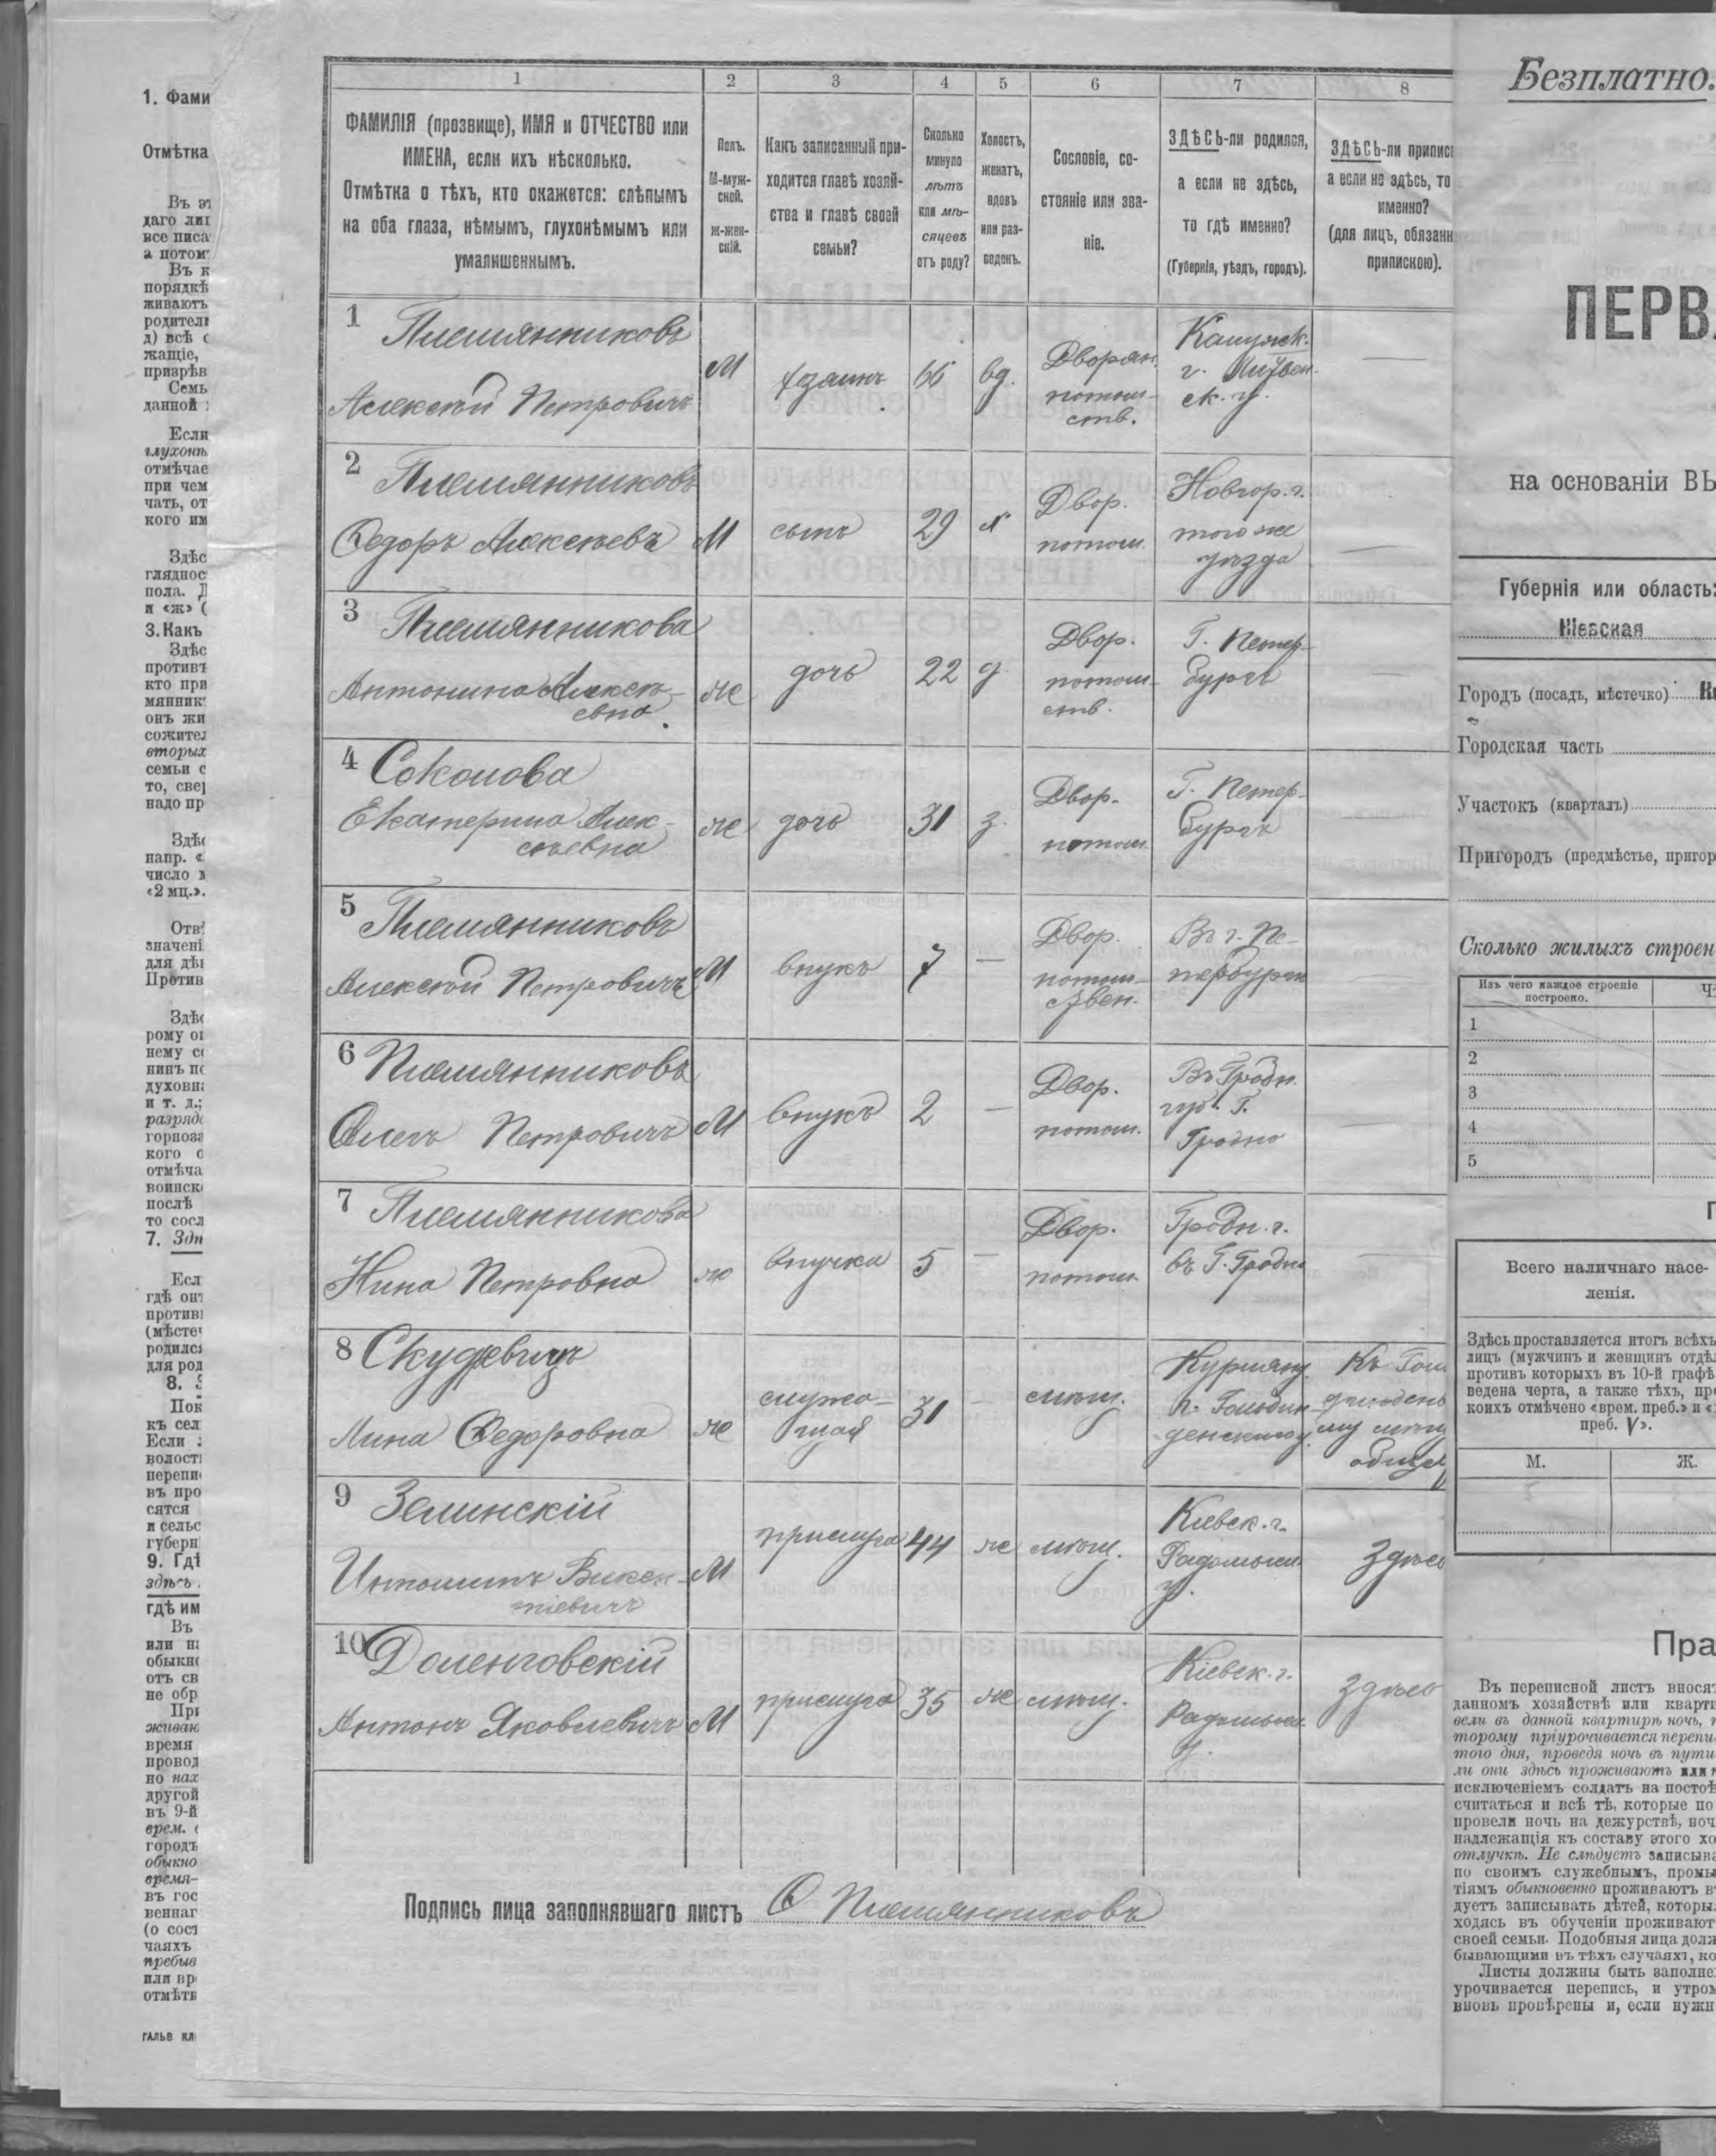 1. Фами
Отмѣтка
Въ эт
даго лиц
все писа
а потом
Въ к
порядкѣ
живаютъ
родител
д) всѣ с
жащіе,
призрѣв
Семь
данной
Если
глухонѣ
отмѣчае
при чем
чать, от
кого им
Здѣс
гляднос
пола. Д
и «ж» (
3. Какъ
Здѣс
противъ
кто при
мянник
онъ жи
сожител
вторых
семьи с
то, све
надо пр
Здѣс
напр. «
число м
«2 мц.».
Отв
значені
для дѣ
Против
Здѣс
рому от
нему со
нинъ по
духовн
и т. д.;
разряд
горноза
кого с
отмѣча
воинск
послѣ
то сосл
7. Здѣ
Есл
гдѣ он
против
(мѣсте
родилс
для род
8.
Пок
къ сел
Если
волост
перепи
въ про
сятся
и сельс
губерн
9. Гдѣ
здѣсь
гдѣ им
Въ
или на
обыкно
отъ св
не обр
При
живаю
время
провод
но нах
другой
въ 9-й
врем.
городъ
обыкно
время-
въ гос
веннаг
(о сост
чаяхъ
пребыв
или вр
отмѣтк
ГАЛЬВ КЛ
1 2 3 4 5 6 7 8
ФАМИЛІЯ (прозвище), ИМЯ и ОТЧЕСТВО или
ИМЕНА, если ихъ нѣсколько.
Отмѣтка о тѣхъ, кто окажется: слѣпымъ
на оба глаза, нѣмымъ, глухонѣмымъ или
умалишеннымъ.
Полъ.
М-муж-
ской.
ж-жен-
скій.
Какъ записанный при-
ходится главѣ хозяй-
ства и главѣ своей
семьи?
Сколько
минуло
лѣтъ
или мѣ-
сяцевъ
отъ роду?
Холостъ,
женатъ,
вдовъ
или раз-
веденъ.
Сословіе, со-
стояніе или зва-
ніе.
ЗДѢСЬ-ли родился,
а если не здѣсь,
то гдѣ именно?
(Губернія, уѣздъ, городъ).
ЗДѢСЬ-ли приписа
а если не здѣсь, то
именно?
(для лицъ, обязанн
припискою).
1
Племянниковъ
Алексѣй Петровичъ
М
хозяинъ
66
вд.
Дворян.
потом-
ств.
Калужск.
г.
—
2
Племянниковъ
Федоръ Алексѣевъ
М
сынъ
29
х
Двор.
потом.
Новгор. г.
того же
уѣзда
—
3
Племянникова
Антонина Алексѣ-
евна
ж
дочь
22
д
Двор.
потом-
ств.
Г. Петер-
бургъ
—
4
Соколова
Екатерина Алек-
сѣевна
ж
дочь
31
з.
Двор.
потом.
Г. Петер-
бургъ
5
Племянниковъ
Алексѣй Петровичъ
М
внукъ
7
—
Двор.
потом-
ствен.
Въ г. Пе-
тербургѣ
6
Племянниковъ
Олегъ Петровичъ
М
внукъ
2
—
Двор.
потом.
Въ Гродн.
губ. Г.
Гродно
7
Племянникова
Нина Петровна
ж
внучка
5
—
Двор.
потом.
Гродн. г.
въ Г. Гродно
—
8
Скудевицъ
Лина Федоровна
ж
служа-
щая
31
—
мѣщ.
Курлянд.
г. Гольдин-
Къ Гол
му мѣщ
общес
9
Зелинскій
Викен-
тіевичъ
М
прислуга
44
ж
мѣщ.
Кіевск. г.
Радомысл.
у.
Здѣсь
10
Доленговскій
Антонъ Яковлевичъ
М
прислуга
35
ж
мѣщ.
Кіевск. г.
Радомысл.
у.
здѣсь
Подпись лица заполнявшаго листъ Ѳ Племянниковъ
Безплатно.
ПЕРВА
на основаніи ВЫ
Губернія или область:
Кіевская
Городъ (посадъ, мѣстечко) Кі
Городская часть
Участокъ (кварталъ)
Пригородъ (предмѣстье, пригор
Сколько жилыхъ строен
Изъ чего каждое строеніе
построено.
1
2
3
4
5
Всего наличнаго насе-
ленія.
Здѣсь проставляется итогъ всѣхъ
лицъ (мужчинъ и женщинъ отдѣл
противъ которыхъ въ 10-й графѣ
ведена черта, а также тѣхъ, пр
коихъ отмѣчено «врем. преб.» и «
преб. V».
М. Ж.
Пра
Въ переписной листъ вносят
данномъ хозяйствѣ или кварти
вели въ данной квартирѣ ночь,
торому пріурочивается перепи
того дня, проведя ночь въ пути
ли они здѣсь проживаютъ или
исключеніемъ солдатъ на постоѣ
считаться и всѣ тѣ, которые по
провели ночь на дежурствѣ, ноч
надлежащія къ составу этого хо
отлучкѣ. Не слѣдуетъ записыва
по своимъ служебнымъ, промы
тіямъ обыкновенно проживаютъ в
дуетъ записывать дѣтей, которы
ходясь въ обученіи проживают
своей семьи. Подобныя лица долж
бывающими въ тѣхъ случаяхъ, ко
Листы должны быть заполне
урочивается перепись, и утром
вновь провѣрены и, если нужн